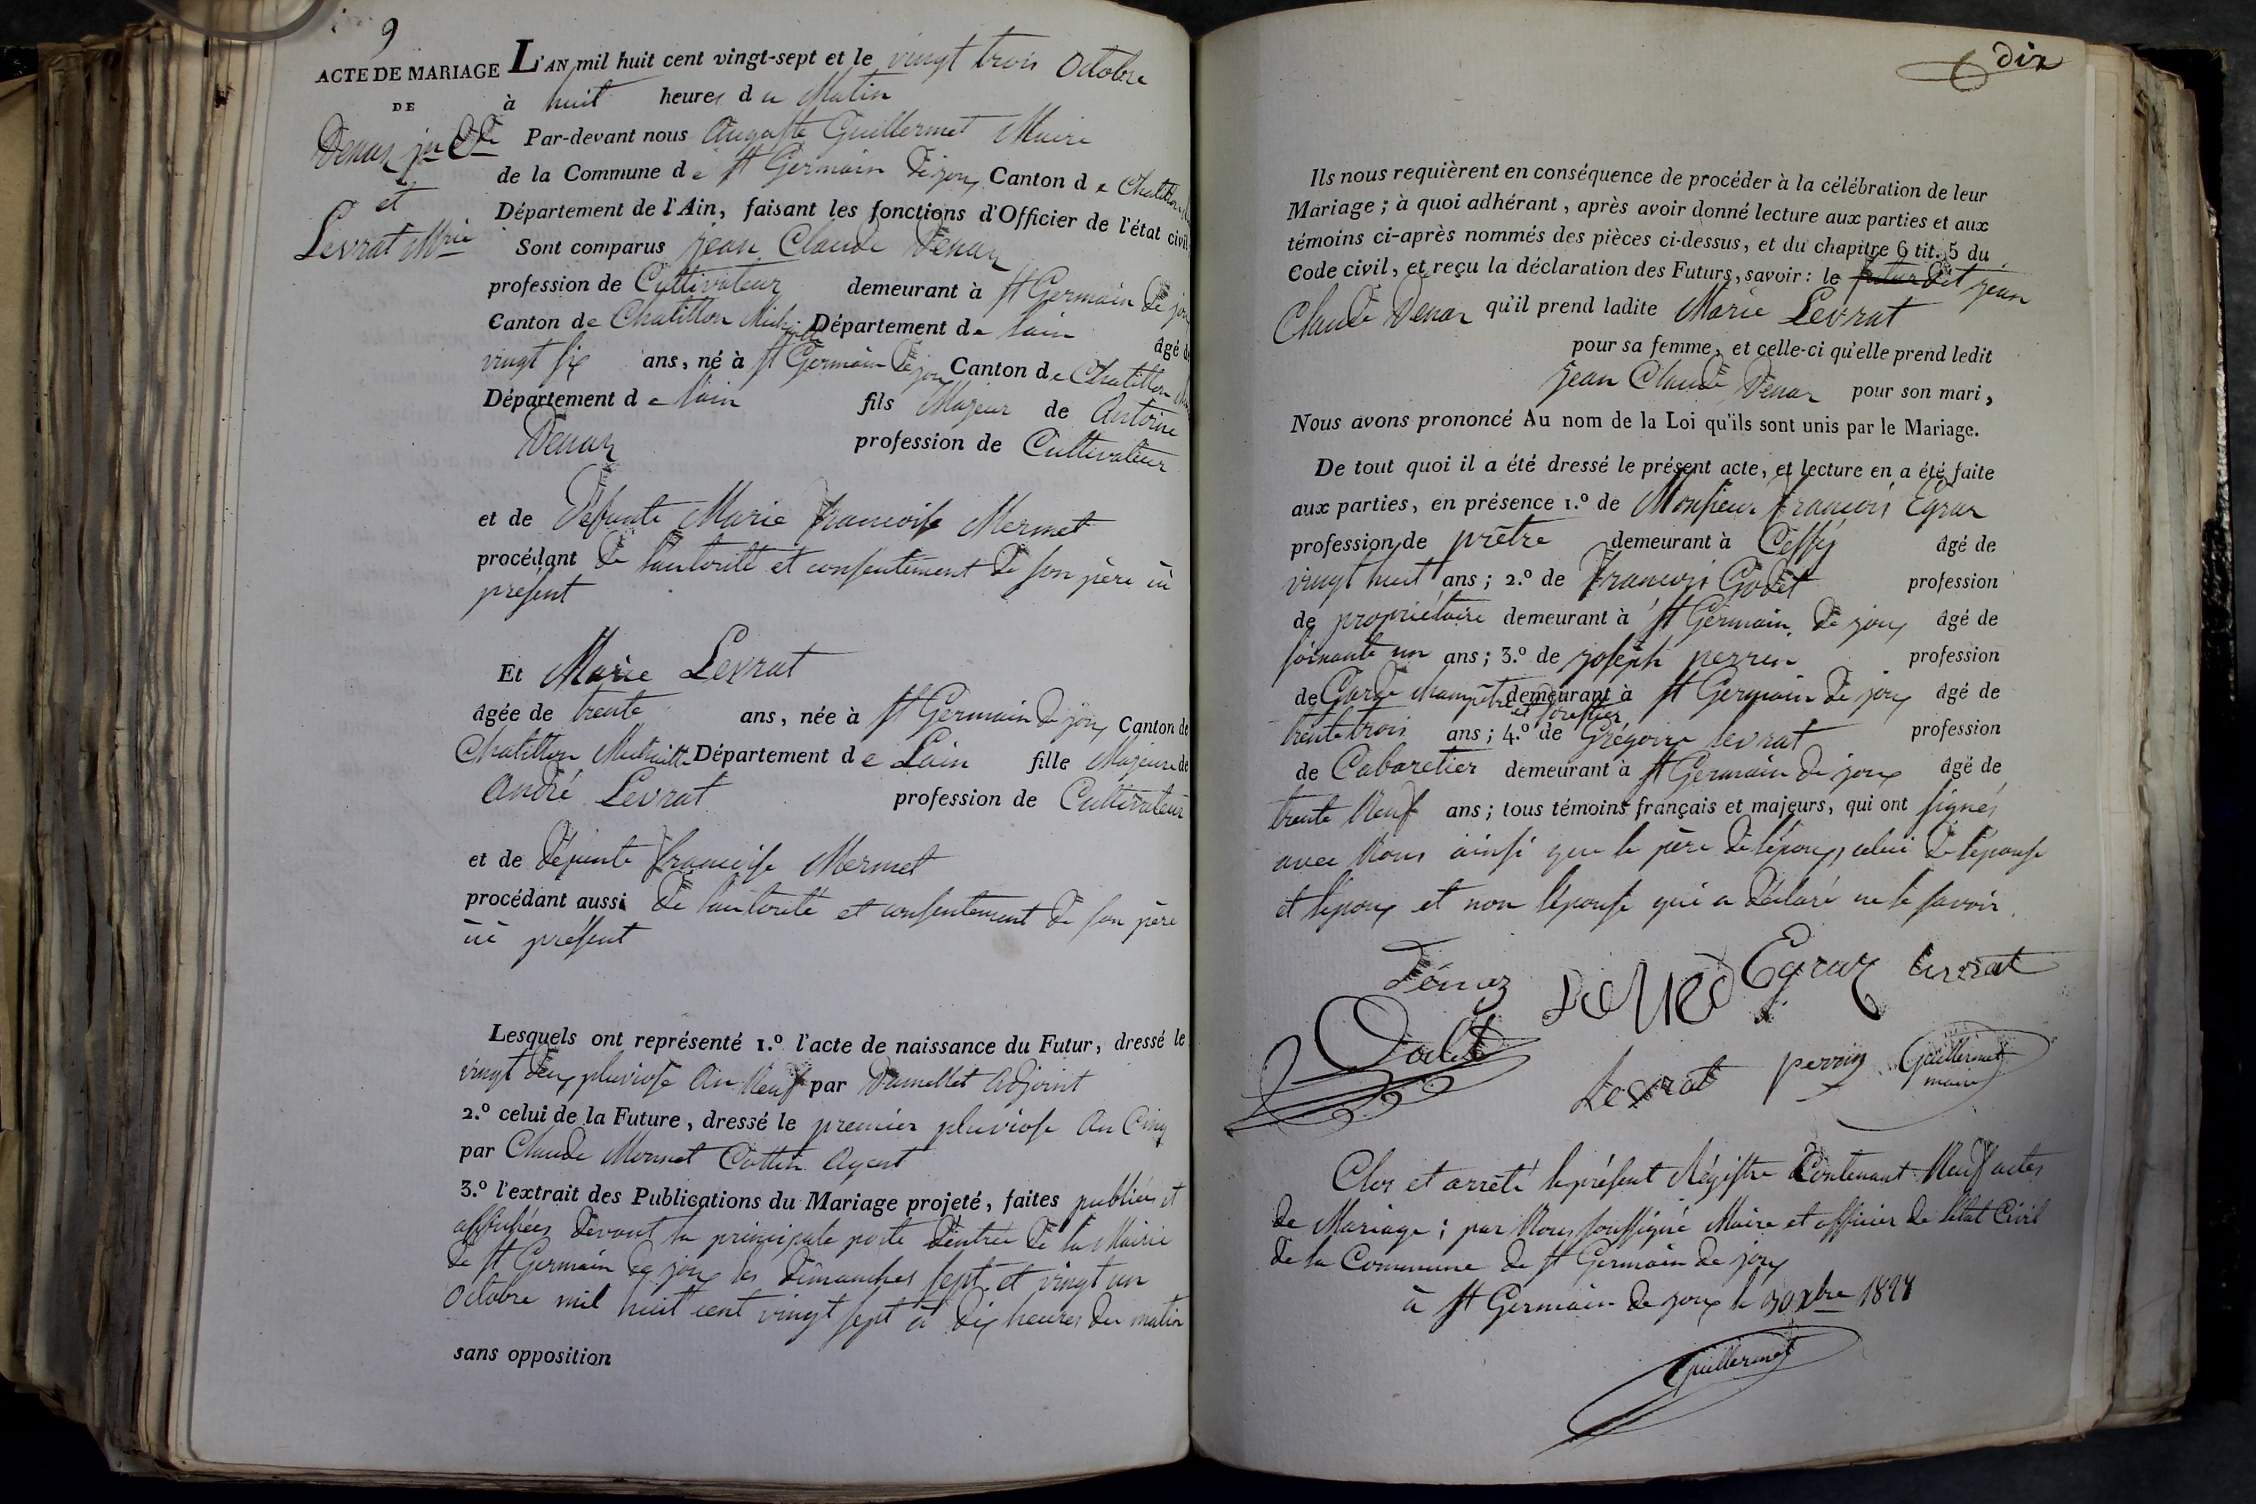 9
ACTE DE MARIAGE
DE
Denaz jn Cde
et
Levrat Mrie
L'AN mil huit cent vingt-sept et le vingt trois Octobre
à huit heures du Matin
Par-devant nous Auguste Guillermet Maire
de la Commune de St Germain de joux Canton de Chatillon
Département de l'Ain, faisant les fonctions d'Officier de l'état civil
Sont comparus jean Claude Denaz
profession de Cultivateur demeurant à St Germain de joux
Canton de Chatillon Michaille Département de lain âgé de
vingt six ans, né à St Germain de joux Canton de Chatillon
Département de lain fils Majeur de Antoine
Denaz profession de Cultivateur
et de Défunte Marie francoise Mermet
procédant de lautorité et consentement de son père ici
présent
Et Marie Levrat
âgée de trente ans, née à St Germain de joux Canton de
Chatillon Michaille Département de Lain fille Majeure de
André Levrat profession de Cultivateur
et de défunte francoise Mermet
procédant aussi de lautorité et consentement de son père
ici présent
Lesquels ont représenté 1.º l'acte de naissance du Futur, dressé le
vingt deux pluviose an Neuf par adjoint
2.º celui de la Future, dressé le premier pluviose an Cinq
par Claude Monnet Cottin agent
3.º l'extrait des Publications du Mariage projeté, faites publiées et
affichées devant la principale porte dentrée de la Mairie
de St Germain de joux les dimanches sept et vingt un
Octobre mil huit cent vingt sept à dix heures du matin
sans opposition
dix
Ils nous requièrent en conséquence de procéder à la célébration de leur
Mariage ; à quoi adhérant, après avoir donné lecture aux parties et aux
témoins ci-après nommés des pièces ci-dessus, et du chapitre 6 tit. 5 du
Code civil, et reçu la déclaration des Futurs, savoir : le futur dit jean
Claude Denaz qu'il prend ladite Marie Levrat
pour sa femme, et celle-ci qu'elle prend ledit
jean Claude Denaz pour son mari,
Nous avons prononcé Au nom de la Loi qu'ils sont unis par le Mariage.
De tout quoi il a été dressé le présent acte, et lecture en a été faite
aux parties, en présence 1.º de Monsieur François Egraz
profession de prêtre demeurant à âgé de
vingt huit ans ; 2.º de François Godet profession
de propriétaire demeurant à St Germain de joux âgé de
soixante un ans ; 3.º de joseph perrin profession
de Garde champêtre demeurant à St Germain de joux âgé de
et forestier
trente trois ans ; 4.º de Grégoire levrat profession
de Cabaretier demeurant à St Germain de joux âgé de
trente Neuf ans ; tous témoins français et majeurs, qui ont signés
avec Nous ainsi que le père de lépoux, celui de lépouse
et lépoux et non lépouse qui a déclaré ne le savoir.
Dénaz Egraz Levrat
Godet
Levrat perrin Guillermet
maire
Clos et arrêté le présent Régistre Contenant Neuf actes
de Mariage ; par Nous soussigné Maire et officier de létat Civil
de la Commune de St Germain de joux
à St Germain de joux le Xbre 1827
Guillermet